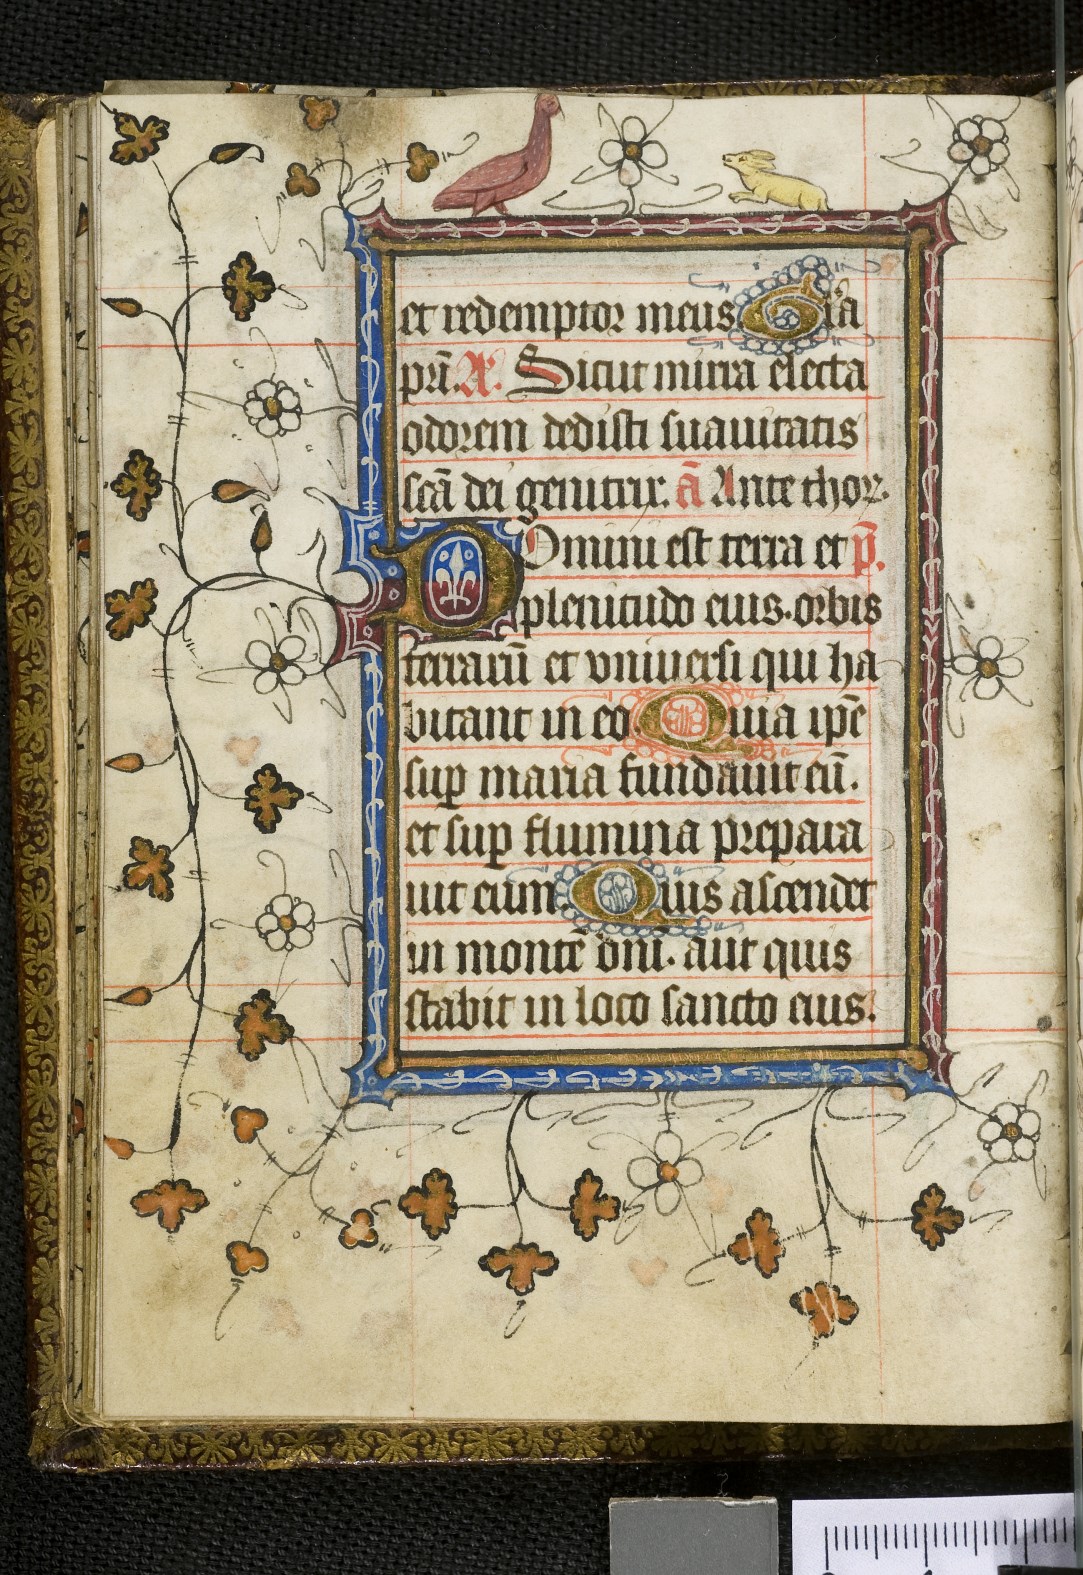 et redemptor meus Gľa
pr̄i. Ax. Sicut mirra electa
odorem dedisti suauitatis
sc̄a dei genitrix. ā Ante thor.
Domini est terra et p̄.
plenitudo eius. orbis
terrarū et vniuersi qui ha
bitant in eo. Quia ip̄e
sup maria fundauit eū.
et sup flumina prepara
uit eum. Quis ascendet
in montē dn̄i. aut quis
stabit in loco sancto eius.